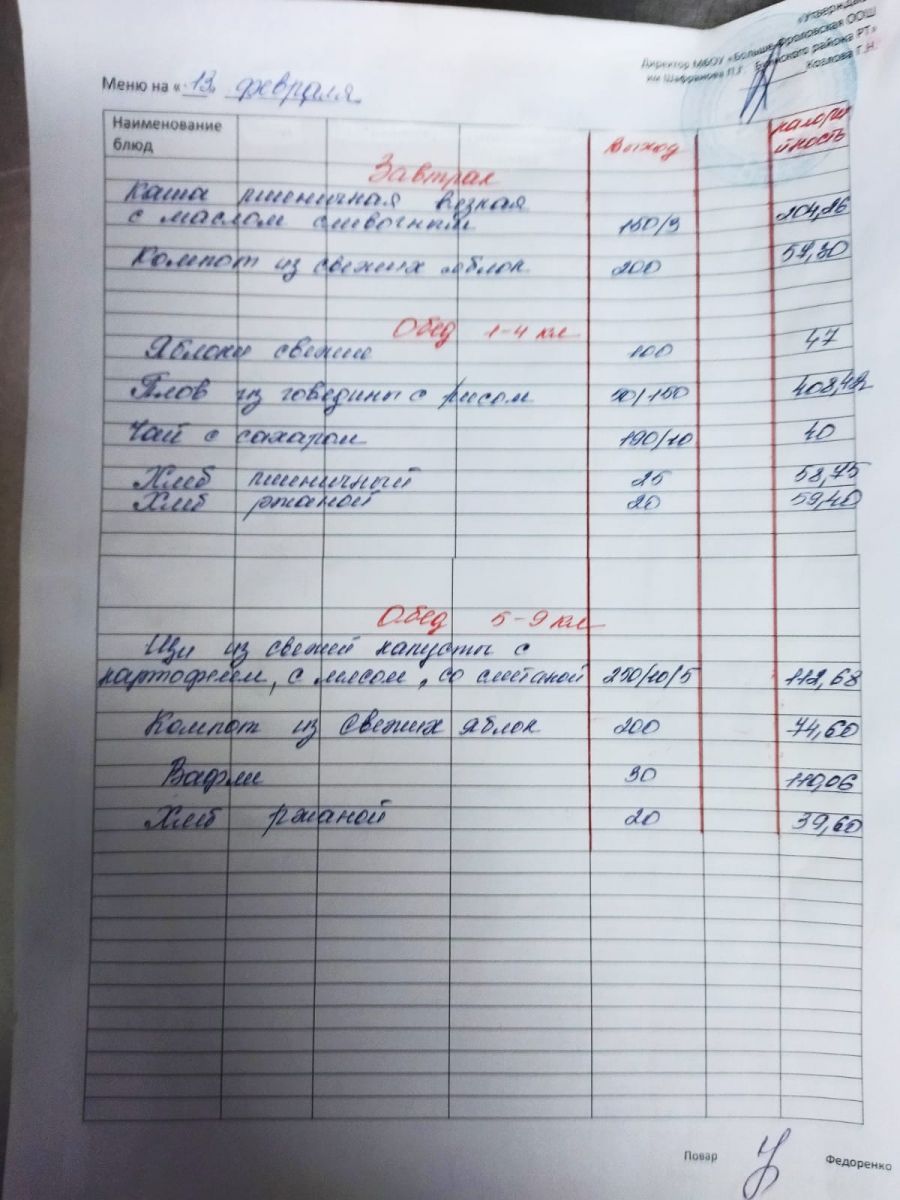 «Утверждаю
Директор МБОУ «Больше-Фроловская ООШ
им Шафранова П.Г. Буинского района РТ»
Козлова Г.Н.
Меню на «13» февраля
Наименование блюд Выход калорийность
Завтрак
Каша пшеничная вязкая
с маслом сливочным 150/3 204,26
Компот из свежих яблок 200 57,30
Обед 1-4 кл
Яблоки свежие 100 47
Плов из говядины с рисом 50/150 408,42
Чай с сахаром 190/10 40
Хлеб пшеничный 25 58,75
Хлеб ржаной 20 59,40
Обед 5-9 кл
Щи из свежей капусты с
картофелем, с мясом, со сметаной 250/10/5 112,68
Компот из свежих яблок 200 74,60
Вафли 30 110,06
Хлеб ржаной 20 39,60
Повар Федоренко